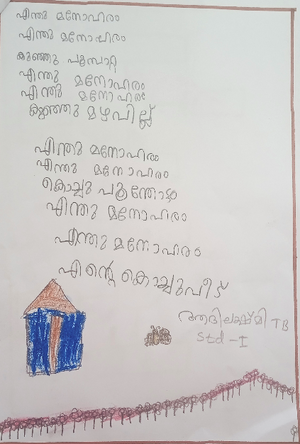 എന്തു മനോഹരം
എന്തു മനോഹരം
കുഞ്ഞു പൂമ്പാറ്റ
എന്തു മനോഹരം
എന്തു മനോഹരം
കുഞ്ഞു മഴവില്ല്
എന്തു മനോഹരം
എന്തു മനോഹരം
കൊച്ചു പൂന്തോട്ടം
എന്തു മനോഹരം
എന്തു മനോഹരം
എന്റെ കൊച്ചുവീട്
TB
Std - I